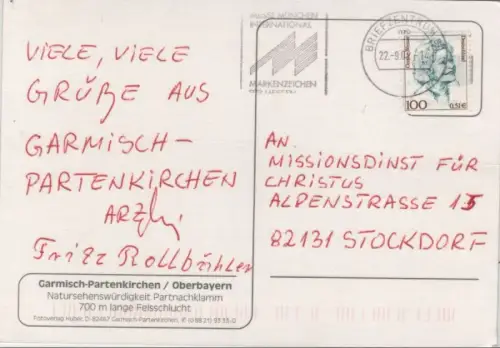 VIELE, VIELE
GRÜßE AUS
GARMISCH-
PARTENKIRCHEN
Fritz Rollbühler
Garmisch-Partenkirchen / Oberbayern
Natursehenswürdigkeit Partnachklamm
700 m lange Felsschlucht
Fotoverlag Huber, D-82467 Garmisch-Partenkirchen
MESSE MÜNCHEN
INTERNATIONAL
MARKENZEICHEN
BRIEFZENTRUM
22.-9.0
100
0,51€
AN
MISSIONSDINST FÜR
CHRISTUS
ALPENSTRASSE 15
82131 STOCKDORF